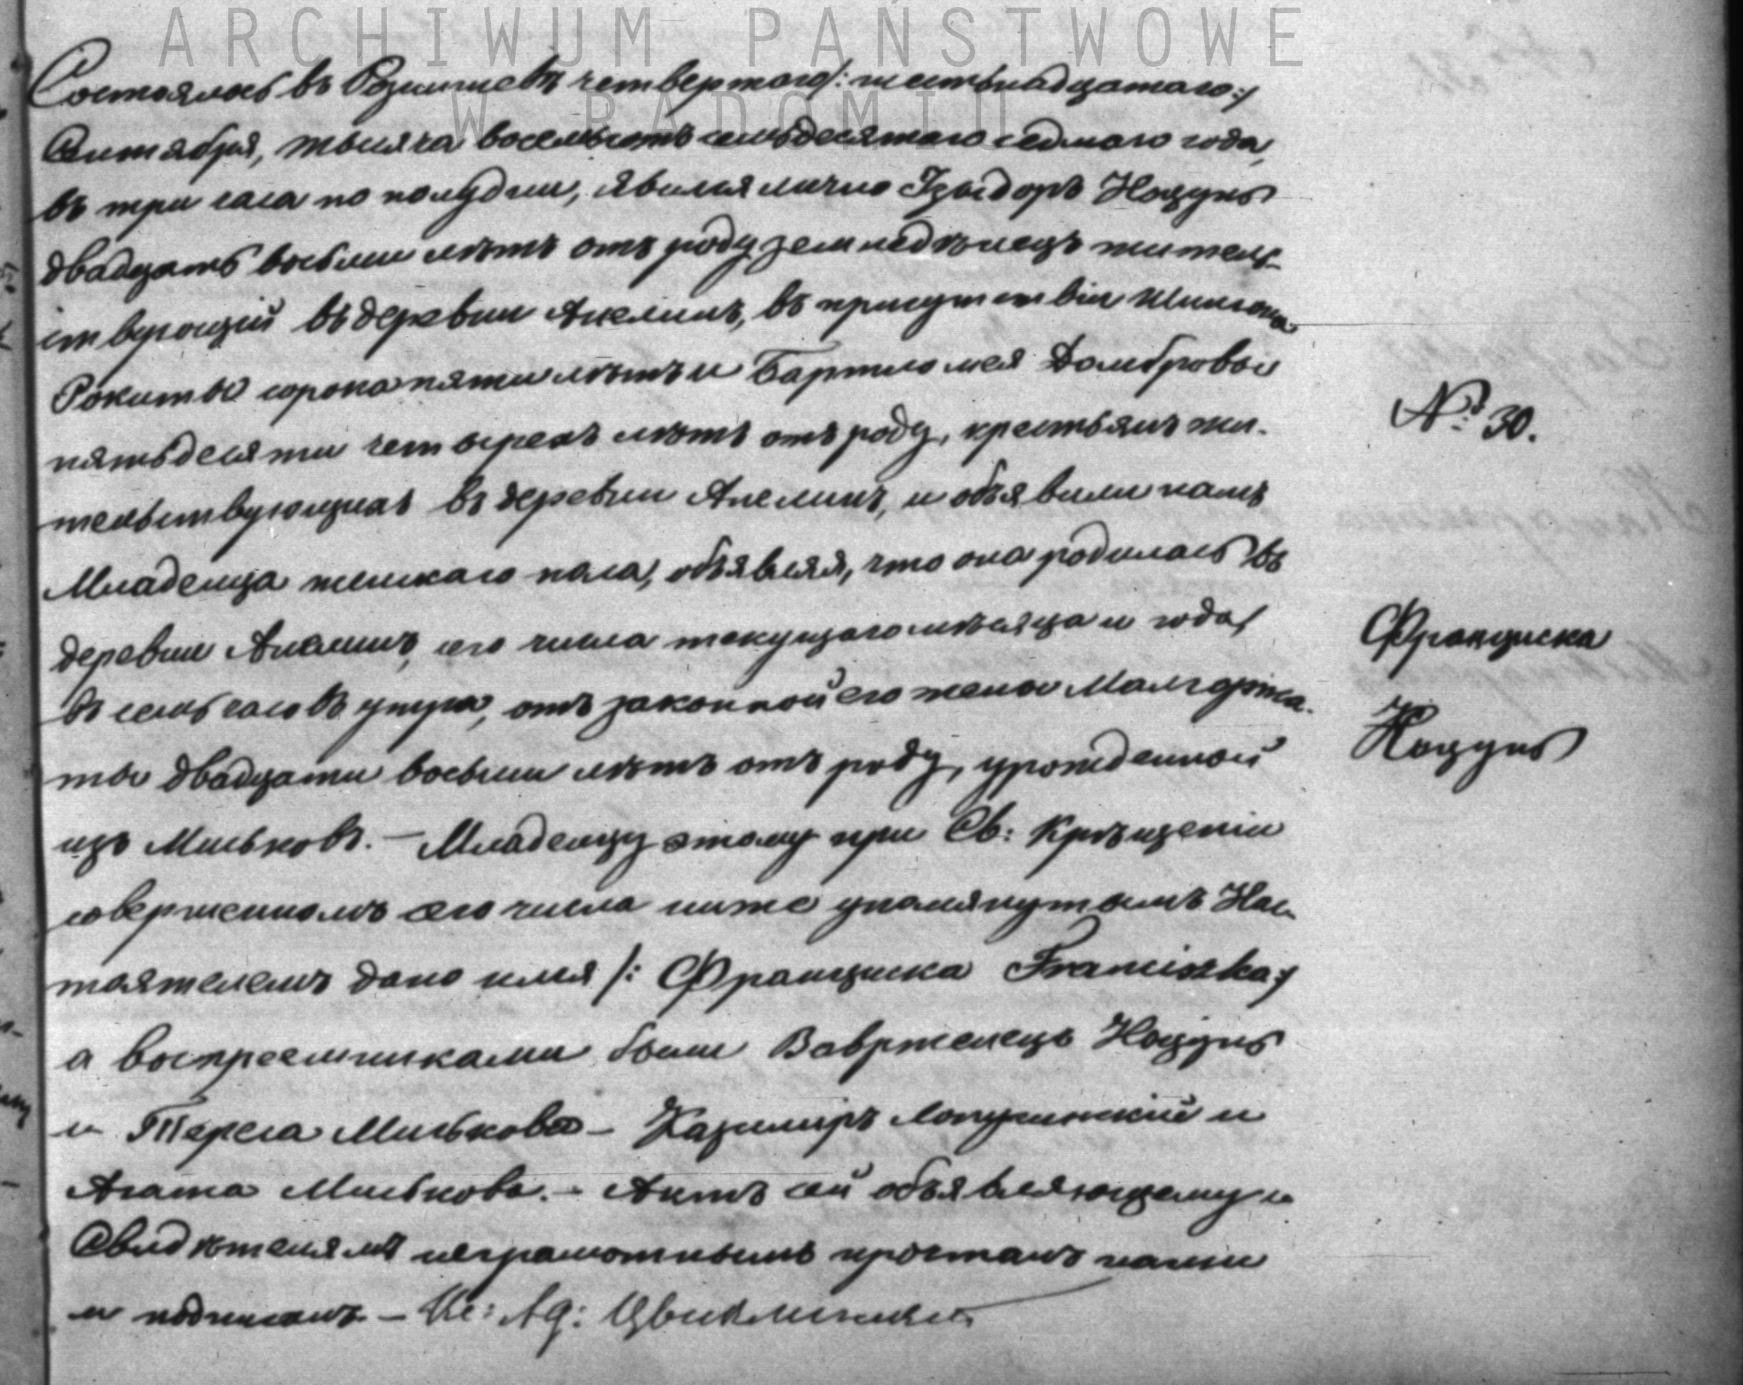 ARCHIWUM PAŃSTWOWE
W RADOMIU
Состоялось въ четвертаго /: шестьнадцатаго :/
Сентября, тысяча восемьсотъ семьдесятаго седмаго года,
въ три часа по полудни, явился лично Изыдоръ Коцунь
двадцать восьми лѣтъ отъ роду земледѣлецъ житель-
ствующій въ деревни Анелинъ, въ присутствіи Шимона
Рокиты сорока пяти лѣтъ и Бартломея Домбровы
пятьдесяти четырехъ лѣтъ отъ роду, крестьянъ жи-
тельствующихъ въ деревни Анелинъ, и объявили намъ
Младенца женскаго пола, объявляя, что она родилась въ
деревни Анелинъ, сего числа текущаго мѣсяца и года,
въ семь часовъ утра, отъ законной его жены Малгоржа-
ты двадцати восьми лѣтъ отъ роду, урожденной
изъ Миськовъ. – Младенцу этому при Св: Крѣщеніи
совершенномъ сего числа ниже упомянутымъ Нас-
тоятелемъ дано имя /: Франциска Franciszka :/
а воспреемниками были Вавржепецъ Коцунь
и Тереса Миськова – Казимиръ Лопушинскій и
Агата Миськова. – Актъ сей объявляющему и
Свидѣтелямъ неграмотнымъ прочтанъ нами
и подписанъ. – Кс: Ад:
№ 30.
Франциска
Коцунь